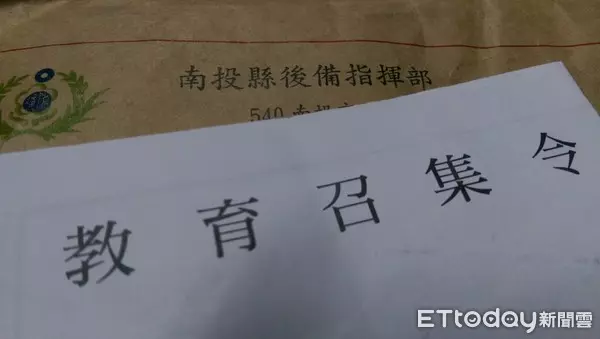 南投縣後備指揮部
540 南投
教育召集令
ETtoday新聞雲